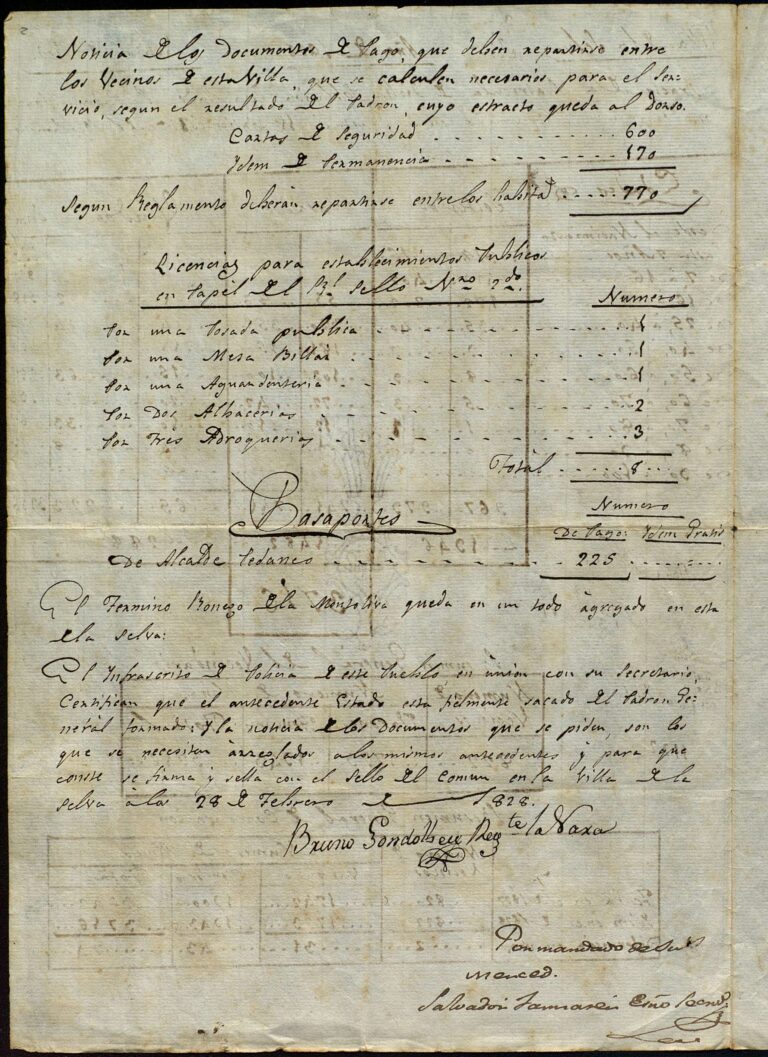 Noticia de los Documentos de Pago, que deben repartirse entre
los Vecinos de esta Villa, que se calculen necesarios para el Ser-
vicio, segun el resultado del Padron, cuyo estracto queda al Dorso.
Cartas de Seguridad . . . . . . . . . . . . . 600
Idem de Permanencia . . . . . . . . . . . . 170
Segun Reglamento deberan repartirse entre los habitas. . . . . . 770
Licencias para establecimientos Publicos
en Papel del Rl. Sello Nro. 2do.
Numero
Por una Posada publica . . . . . . . . . . 1
Por una Mesa Billar . . . . . . . . . . 1
Por una Aguardenteria . . . . . . . . . . 1
Por Dos Albacerias . . . . . . . . . . 2
Por Tres Adroquerias . . . . . . . . . . 3
Total . . . . . . 8
Pasaportes
Numero
De Pago: Idem Gratis
De Alcalde Pedaneo . . . . . . . . . . 225 . . . . . . .
El Termino Ronego de la Montoliva queda en un todo agregado en esta
de la Selva:
El Infrascrito de Policia de este Pueblo en union con su Secretario,
Certifican que el antecedente Estado esta fielmente sacado del Padron Ge-
neral formado: Y la noticia de los Documentos que se piden, son los
que se necesitan arreglados a los mismos antecedentes y para que
conste se firma y sella con el Sello del Comun en la Villa de la
Selva à los 28 de Febrero de 1828.
Bruno Regte la Vara
Por mandado de su
merced.
Salvador Esño Secreo.